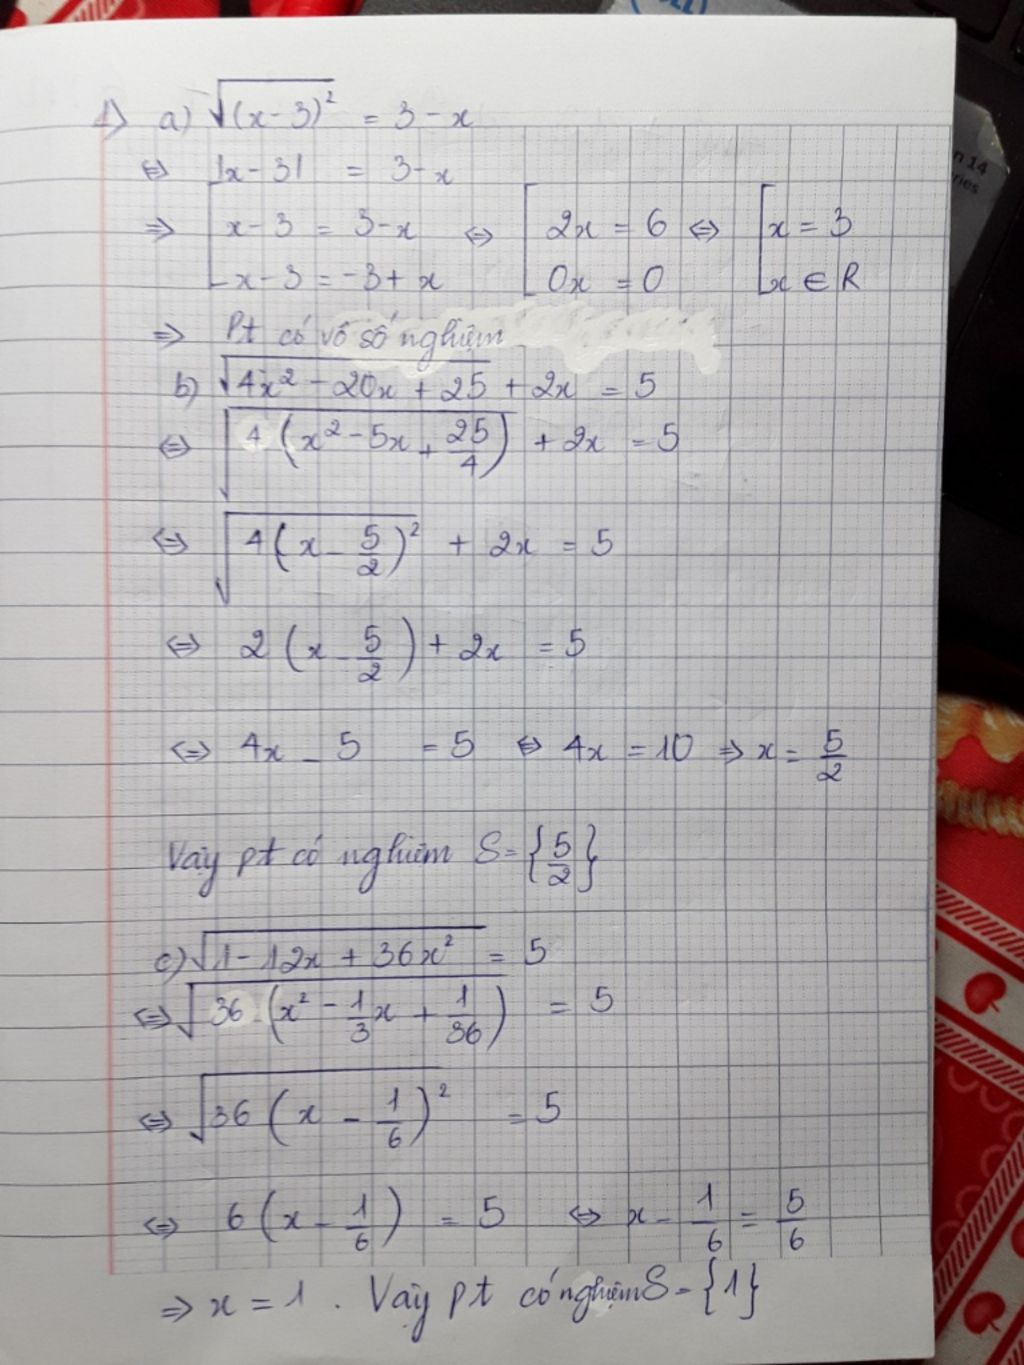 1) a) √(x-3)² = 3-x
⇔ |x-3| = 3-x
⇒ [x-3 = 3-x ⇔ [2x = 6 ⇔ [x = 3
x-3 = -3+x 0x = 0 x ∈ R
⇒ Pt có vô số nghiệm
b) √4x² - 20x + 25 + 2x = 5
⇔ √4(x² - 5x + 25/4) + 2x = 5
⇔ √4(x - 5/2)² + 2x = 5
⇔ 2(x - 5/2) + 2x = 5
⇔ 4x - 5 = 5 ⇔ 4x = 10 ⇒ x = 5/2
Vậy pt có nghiệm S = {5/2}
c) √1 - 12x + 36x² = 5
⇔ √36(x² - 1/3x + 1/36) = 5
⇔ √36(x - 1/6)² = 5
⇔ 6(x - 1/6) = 5 ⇔ x - 1/6 = 5/6
⇒ x = 1. Vậy pt có nghiệm S = {1}